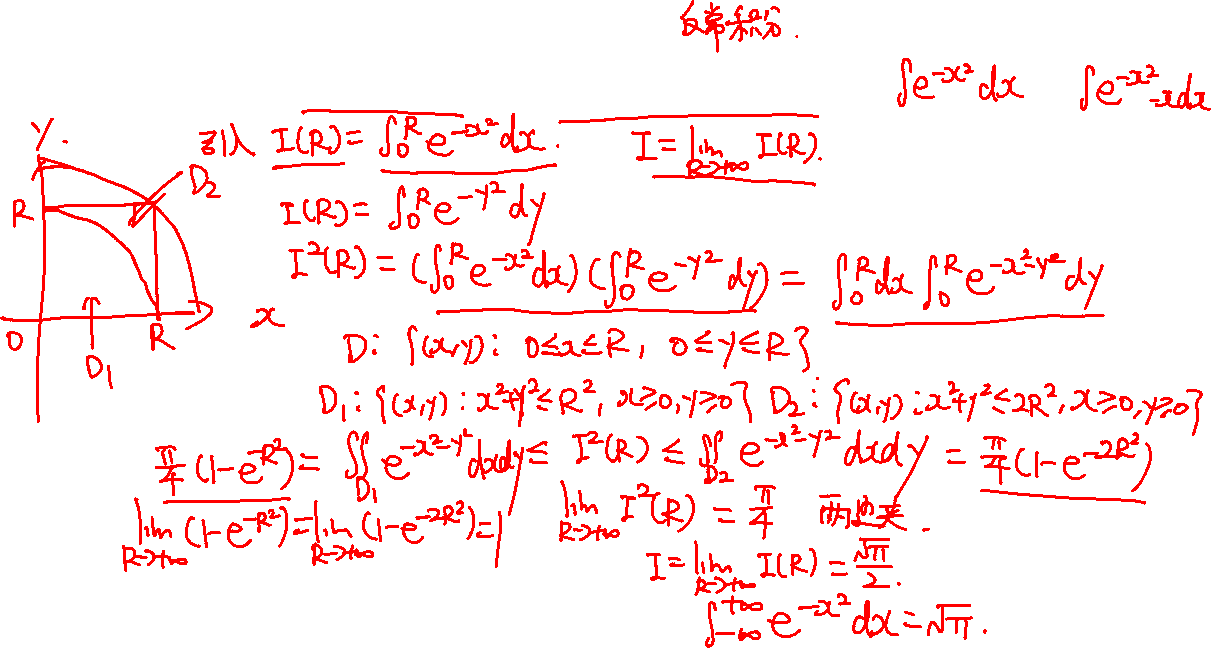 反常积分.
∫e^{-x²}dx ∫e^{-x²}·xdx
引入 I(R)=∫₀ᴿe^{-x²}dx. I=lim_{R→+∞} I(R).
I(R)=∫₀ᴿe^{-y²}dy
I²(R)=(∫₀ᴿe^{-x²}dx)(∫₀ᴿe^{-y²}dy)=∫₀ᴿdx∫₀ᴿe^{-x²-y²}dy
Y.
D₂
R
O
R
x
D₁
D: {(x,y): 0≤x≤R, 0≤y≤R}
D₁: {(x,y): x²+y²≤R², x≥0,y≥0} D₂: {(x,y): x²+y²≤2R², x≥0,y≥0}
π/4(1-e^{-R²})=∬_{D₁}e^{-x²-y²}dxdy≤I²(R)≤∬_{D₂}e^{-x²-y²}dxdy=π/4(1-e^{-2R²})
lim_{R→+∞}(1-e^{-R²})=lim_{R→+∞}(1-e^{-2R²})=1 lim_{R→+∞}I²(R)=π/4 两边夹.
I=lim_{R→+∞}I(R)=√π/2.
∫_{-∞}^{+∞}e^{-x²}dx=√π.